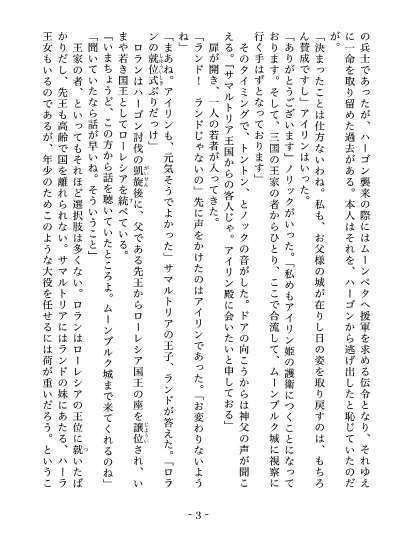 の兵士であったが、ハーゴン襲来の際にはムーンペタへ援軍を求める伝令となり、それゆえ
に一命を取り留めた過去がある。本人はそれを、ハーゴンから逃げ出したと恥じていたのだ
が。
「決まったことは仕方ないわね。私も、お父様の城が在りし日の姿を取り戻すのは、もちろ
ん賛成ですし」アイリンはいった。
「ありがとうございます」ノリックがいった。「私めもアイリン姫の護衛につくことになって
おります。そして、三国の王家の者からひとり、ここで合流して、ムーンブルク城に視察に
行く手はずとなっております」
そのタイミングで、トントン、とノックの音がした。ドアの向こうからは神父の声が聞こ
える。「サマルトリア王国からの客人じゃ。アイリン殿に会いたいと申しておる」
扉が開き、一人の若者が入ってきた。
「ランド！　ランドじゃないの」先に声をかけたのはアイリンであった。「お変わりないよう
ね」
「まあね。アイリンも、元気そうでよかった」サマルトリアの王子、ランドが答えた。「ロラ
ンの就位式ぶりだっけ」
ロランはハーゴン討伐の凱旋後に、父である先王からローレシア国王の座を譲位され、い
まや若き国王としてローレシアを統べている。
「いまちょうど、この方から話を聴いていたところよ。ムーンブルク城まで来てくれるのね」
「聞いていたなら話が早いね。そういうこと」
王家の者、といってもそれほど選択肢は多くない。ロランはローレシアの王位に就いたば
かりだし、先王も高齢で国を離れられない。サマルトリアにはランドの妹にあたる、ハーラ
王女もいるのであるが、年少のためこのような大役を任せるには荷が重いだろう。というこ
- 3 -